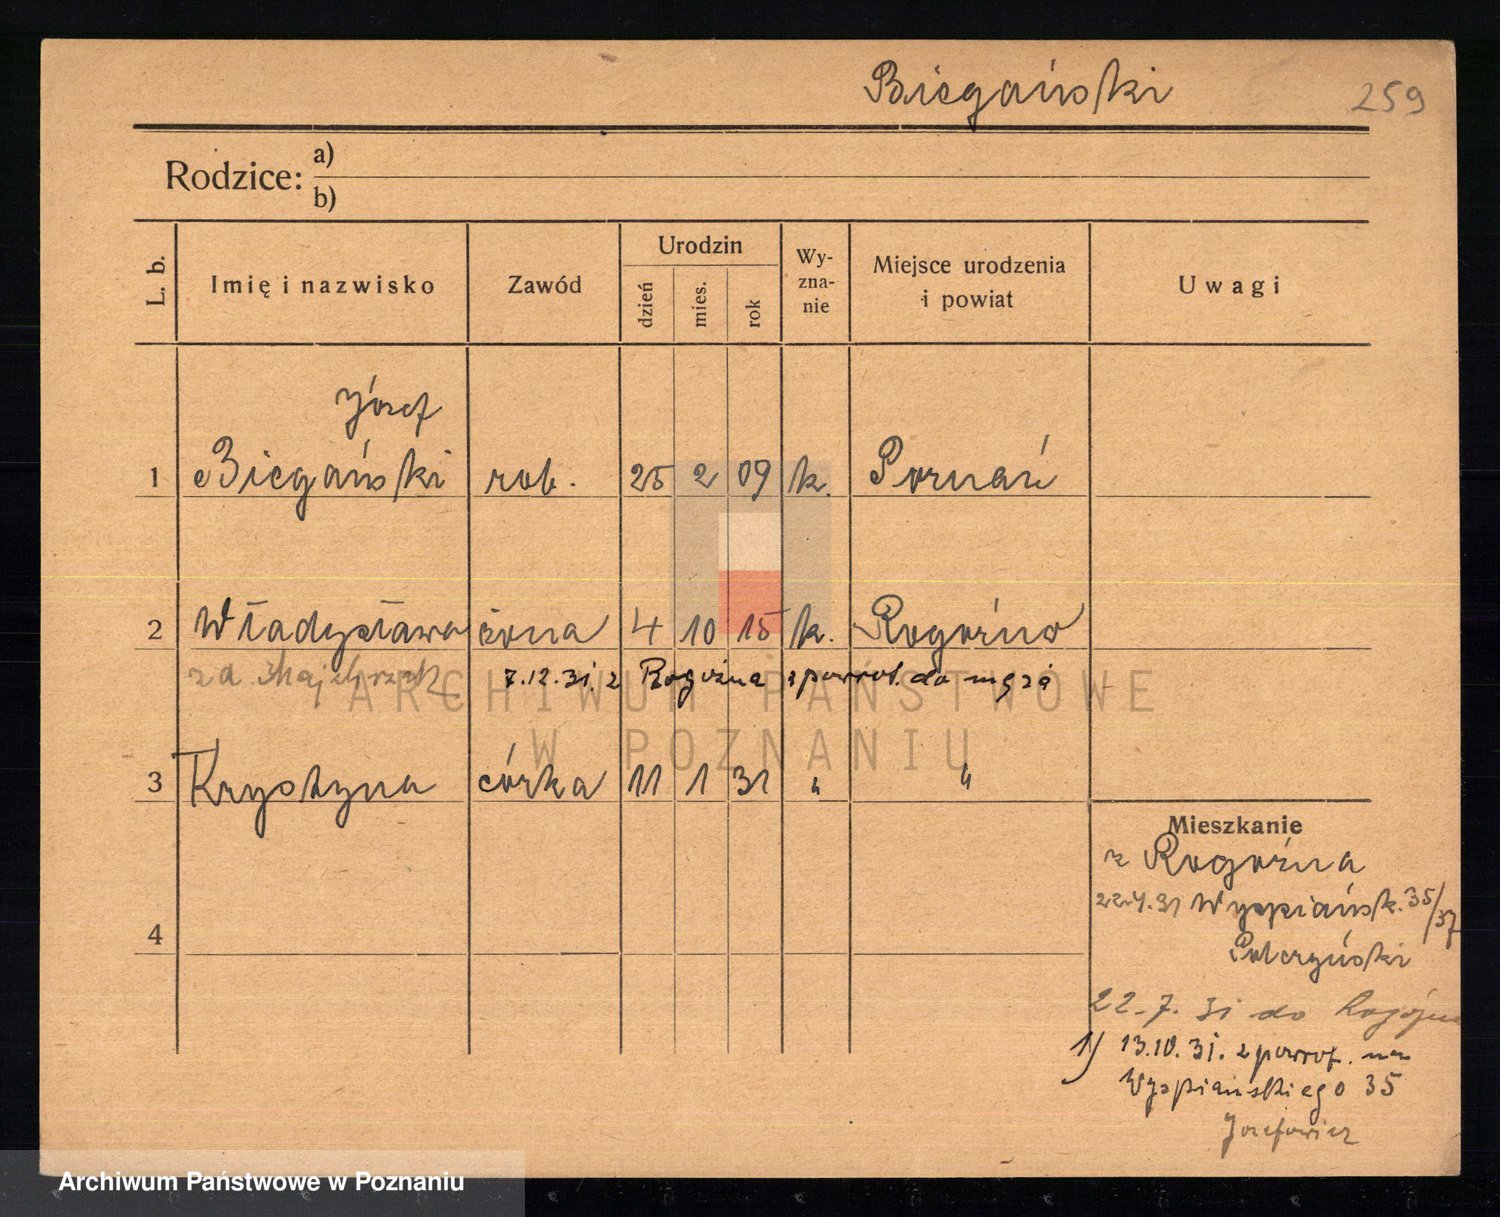 Biegański 259
Rodzice: a)
b)
L. b. Imię i nazwisko Zawód Urodzin dzień mies. rok Wy-zna-nie Miejsce urodzenia i powiat Uwagi
Józef
1 Biegański rob. 25 2 09 k. Poznań
2 Władysława żona 4 10 15 k. Rogoźno
zd.
7.12.31. z Rogoźna z powrot. do męża
ARCHIWUM PAŃSTWOWE
W POZNANIU
3 Krystyna córka 11 1 31 " "
Mieszkanie
z Rogoźna
22.4.31 Wyspiańsk. 35/37
4
22.7.31 do Rogoźna
1) 13.10.31. z powrot. na
Wyspiańskiego 35
Józefowicz
Archiwum Państwowe w Poznaniu